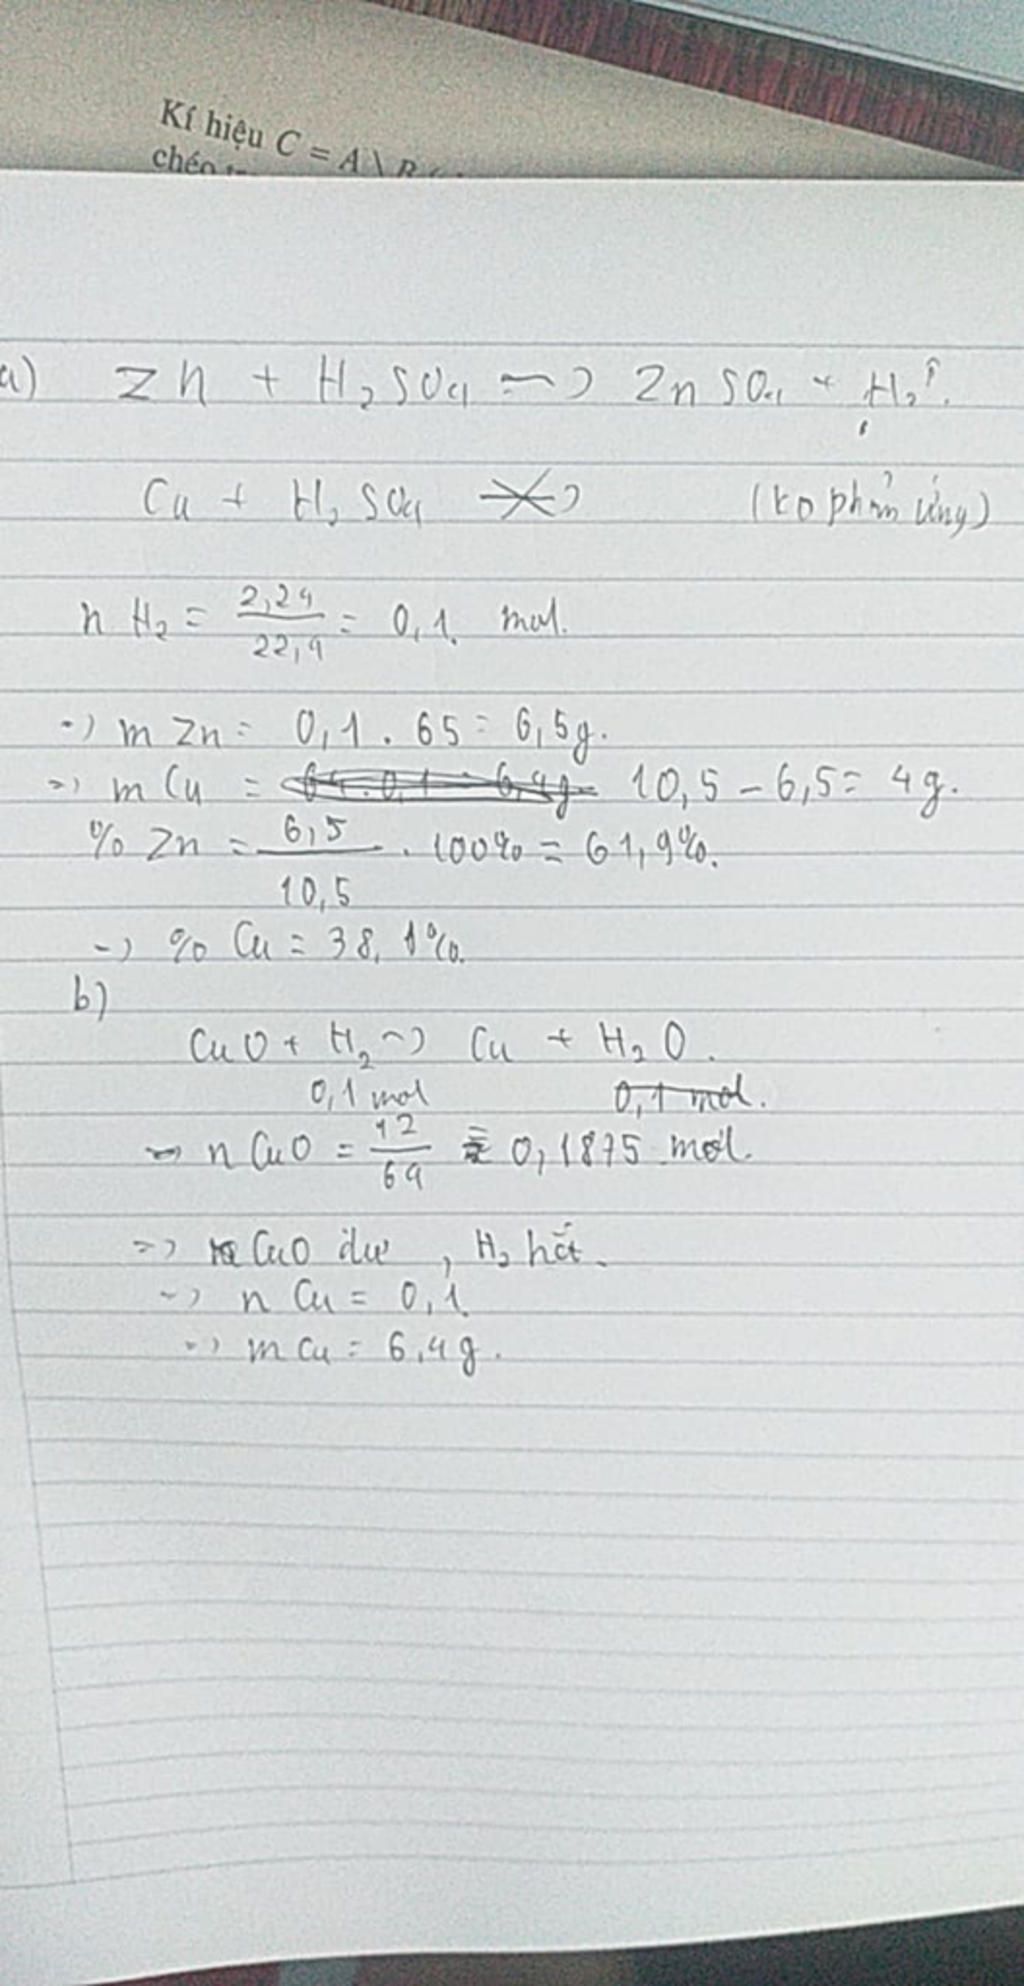 Kí hiệu C = A \ B
chéo
a) Zn + H₂SO₄ → ZnSO₄ + H₂↑.
Cu + H₂SO₄ -X-> (ko phản ứng)
nH₂ = 2,24/22,4 = 0,1 mol.
=> mZn = 0,1 . 65 = 6,5g.
=> mCu = 64.0,1 = 6,4g 10,5 - 6,5 = 4g.
%Zn = 6,5/10,5 . 100% = 61,9%.
=> %Cu = 38,1%.
b)
CuO + H₂ → Cu + H₂O.
0,1 mol 0,1 mol.
=> nCuO = 12/64 = 0,1875 mol.
=> CuO dư, H₂ hết.
=> nCu = 0,1
=> mCu = 6,4g.